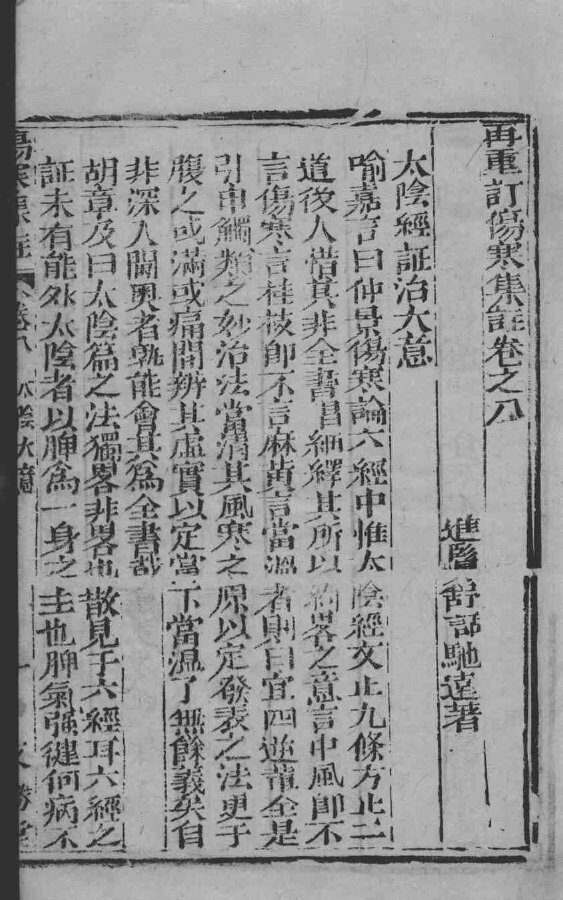 再重訂傷寒集註卷之八
進賢舒詔馳遠著
太陰經証治大意
喻嘉言曰仲景傷寒論六經中惟太陰經文止九條方止二
道後人惜其非全書昌細繹其所以約畧之意言中風即不
言傷寒言桂枝即不言麻黃言當溫者則曰宜四逆輩全是
引申觸類之妙治法當溯其風寒之原以定發表之法更于
腹之或滿或痛間辨其虛實以定當下當温了無餘義矣自
非深入閫奧者孰能會其為全書哉
胡章及曰太陰篇之法獨畧非畧也散見于六經耳六經之
証未有能外太陰者以脾為一身之主也脾氣强健何病不
傷寒集註 卷八 太陰大意 一 文勝堂